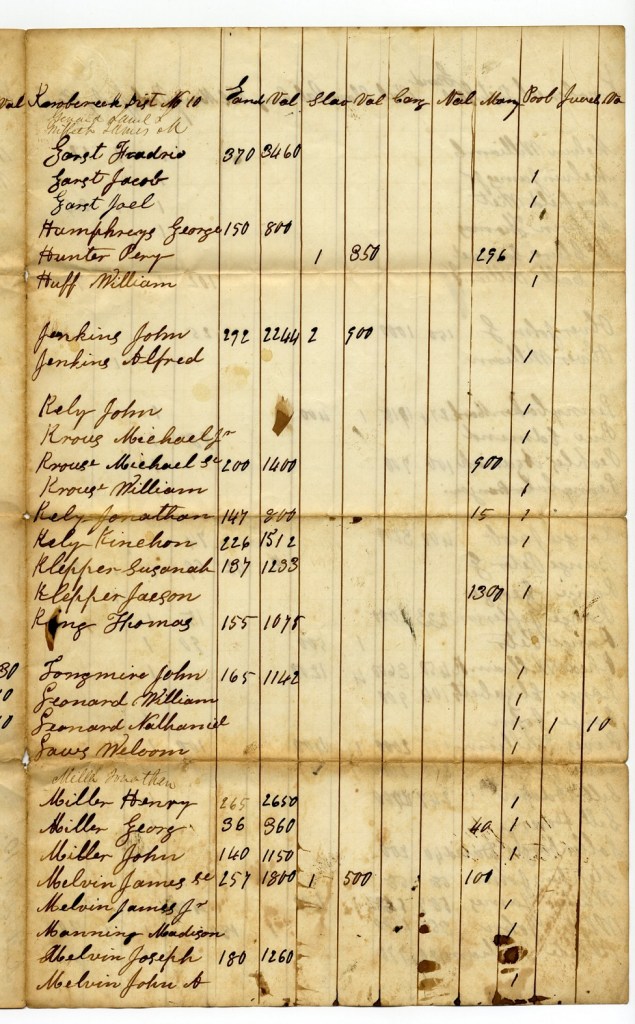 Val Dist No 10 Land Val Slav Val Val Pool Val
Garst 370 3460
Garst Jacob 1
Garst Joel 1
Humphreys George 150 800
Hunter Pery 1 350 296 1
Huff William 1
Jenkins John 292 2244 2 900
Jenkins Alfred 1
Kely John 1
Krous Michael Jr 1
Krouse Michael Se 200 1400 900
Krouse William 1
Kely Jonathan 147 800 15 1
Kely Kinchon 226 1512 1
Klepper Susanah 137 1233
Klepper Jacson 1300 1
King Thomas 155 1075
30 Longmire John 165 1142 1
Leonard William 1
Leonard Nathaniel 1 1 10
Laws Welcom 1
Miller Henry 265 2650 1
Miller Georg 36 360 40 1
Miller John 140 1150 1
Melvin James Se 257 1800 1 500 100
Melvin James Jr 1
Manning Madison 1
Melvin Joseph 180 1260
Melvin John A 1